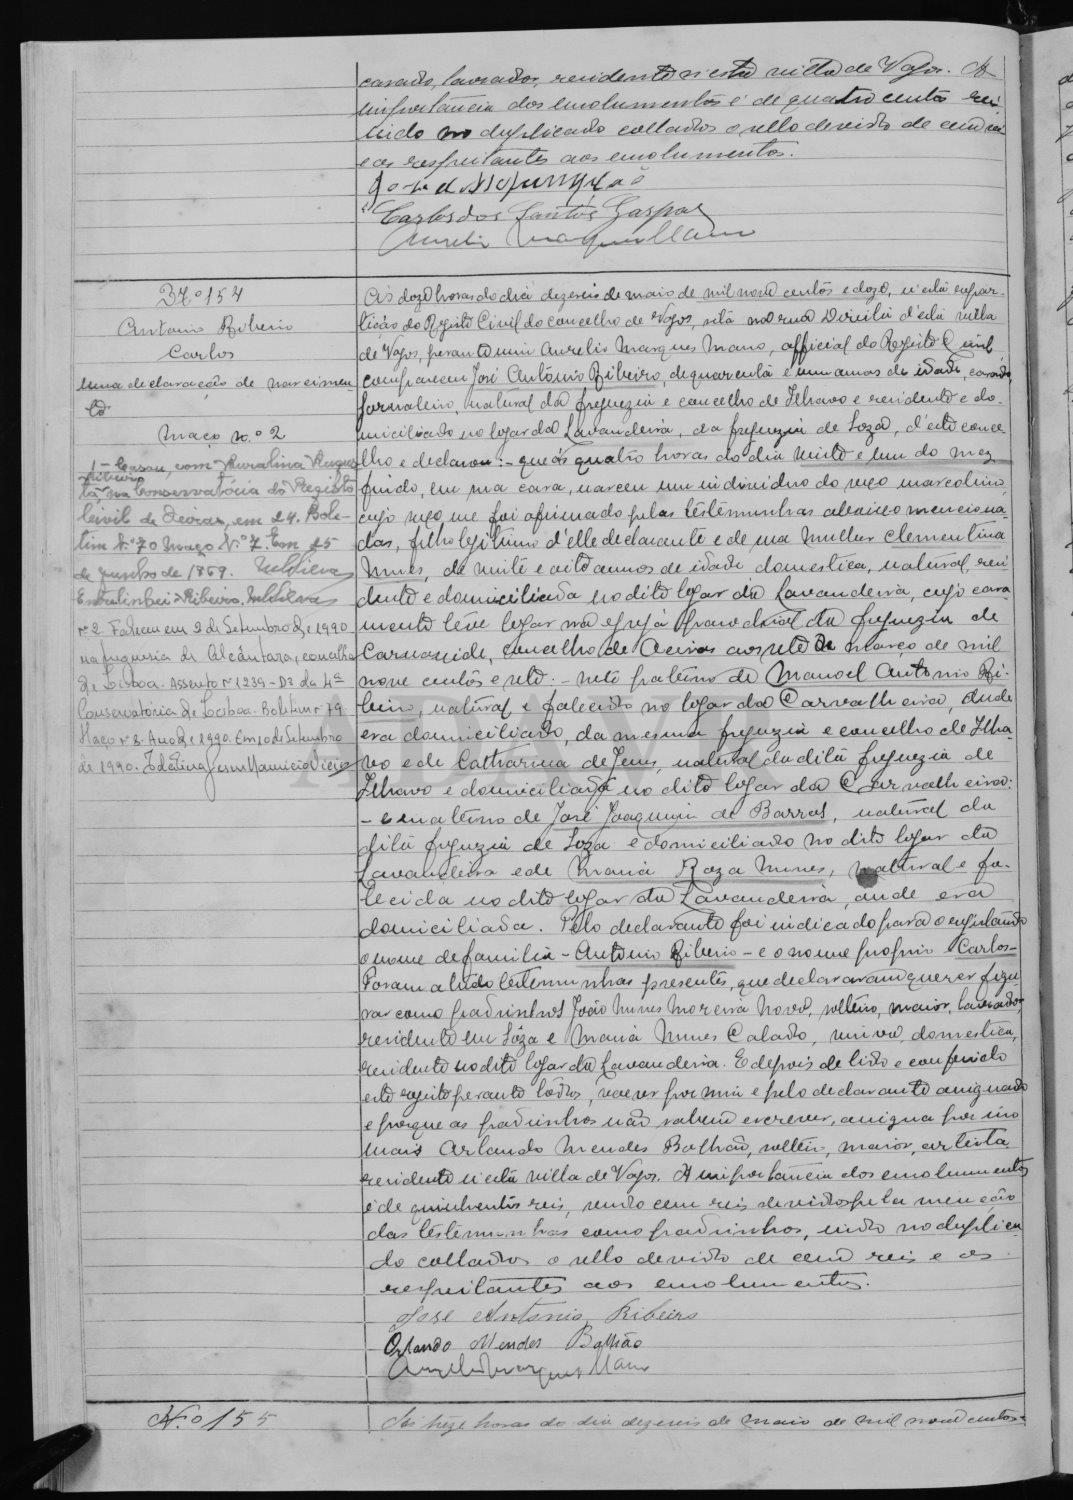 casado, lavrador, residente n'esta villa de Vagos. A
importancia dos emolumentos é de quatro centos reis
sendo no duplicado collados o sello devido de cem reis
e os respeitantes aos emolumentos.
Carlos dos Santos Gaspar
Aurelio Marques Mano
N.º 154
Antonio Ribeiro
Carlos
Uma declaração de nascimen-
to
Maço n.º 2
1 - Casou com Auralina
Ribeiro
na Conservatória do Registo
Civil de Oeiras, em 24. Bole-
tim N.º 70 Maço N.º 7. Em 25
de Junho de 1969. MSilva
Entrelinhei Ribeiro. MSilva
Nº 2 Faleceu em 2 de Setembro de 1990
na freguesia de Alcântara, concelho
de Lisboa. Assento nº 1239-D3 da 4ª
Conservatória de Lisboa. Boletim nº 79
Maço nº 8. Ano de 1990. Em 10 de Setembro
de 1990.
Ás doze horas do dia dezeseis de maio de mil nove centos e doze, n'esta repar-
tição do Registo Civil do concelho de Vagos, sita na rua Direita d'esta villa
de Vagos, perante mim Aurelio Marques Mano, official do Registo Civil
compareceu José Antonio Ribeiro, de quarenta e um annos de idade, casado,
jornaleiro, natural da freguezia e concelho de Ilhavo e residente e do-
miciliado no logar da Lavandeira, da freguezia de Soza, d'este conce-
lho e declarou: - que ás quatro horas do dia vinte e um do mez
findo, em sua casa, nasceu um individuo do sexo masculino
cujo sexo me foi afirmado pelas testemunhas abaixo menciona-
das, filho legitimo d'elle declarante e de sua mulher Clementina
Nunes, de vinte e oito annos de idade domestica, natural, resi-
dente e domiciliada no dito logar da Lavandeira, cujo casa-
mento teve logar na egreja parochial da freguezia de
Carnaxide, concelho de Oeiras aos sete de março de mil
nove centos e sete. - neto paterno de Manoel Antonio Ri-
beiro, natural e falecido no logar da Carvalheira, onde
era domiciliado, da mesma freguezia e concelho de Ilha-
vo e de Catharina de Jesus, natural da dita freguezia de
Ilhavo e domiciliada no dito logar da Carvalheira:
- e materno de José Joaquim de Barros, natural da
dita freguezia de Soza e domiciliado no dito logar da
Lavandeira e de Maria Roza Nunes, natural e fa-
lecida no dito logar da Lavandeira, onde era
domiciliada. Pelo declarante foi indicado para o registando
o nome de familia - Antonio Ribeiro - e o nome proprio Carlos -
Foram a tudo testemunhas presentes, que declararam querer figu-
rar como padrinhos João Nunes Moreira Novo, solteiro, maior, lavrador,
residente em Sôza e Maria Nunes Calado, viuva, domestica,
residente no dito logar da Lavandeira. E depois de lido e conferido
este registo perante todos, vae ser por mim e pelo declarante assignado
e porque os padrinhos não sabem escrever, assigna por
mais Orlando Mendes Bolhão, solteiro, maior, artista
residente n'esta villa de Vagos. A importancia dos emolumentos
é de quinhentos reis, sendo cem reis devidos pela menção
das testemunhas como padrinhos, sendo no duplica-
do collados o sello devido de cem reis e os
respeitantes aos emolumentos.
José Antonio Ribeiro
Orlando Mendes Bolhão
Aurelio Marques Mano
N.º 155
Ás treze horas do dia dezeseis de maio de mil nove centos e
ADAVR